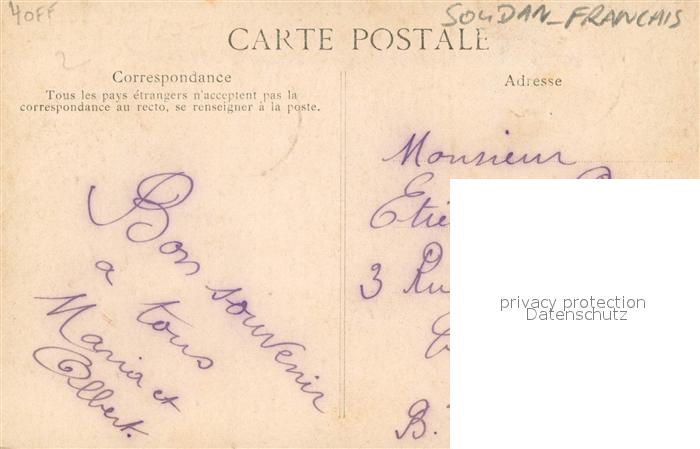 40FF
SOUDAN_FRANCAIS
CARTE POSTALE
Correspondance
Tous les pays étrangers n'acceptent pas la
correspondance au recto, se renseigner à la poste.
Bon souvenir
a tous
Maria et
Albert.
Adresse
Monsieur
3
B.
privacy protection
Datenschutz